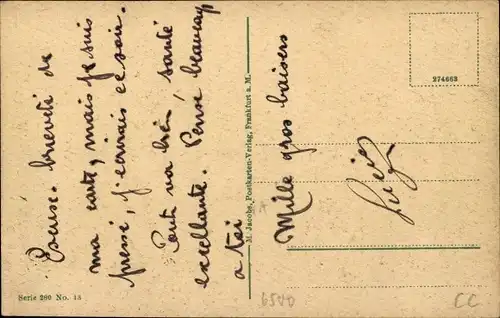 Excuse brieveté de
ma carte, mais je suis
pressé, j'écrirais ce soir.
Tout va bien, santé
excellante. Pense beaucoup
a toi
Mille gros baisers
M. Jacobs, Postkarten-Verlag, Frankfurt a. M.
274663
Serie 260 No. 13
6500
CC